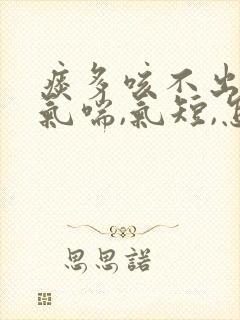 痰多咳不出
氣喘,氣短,
思思諾